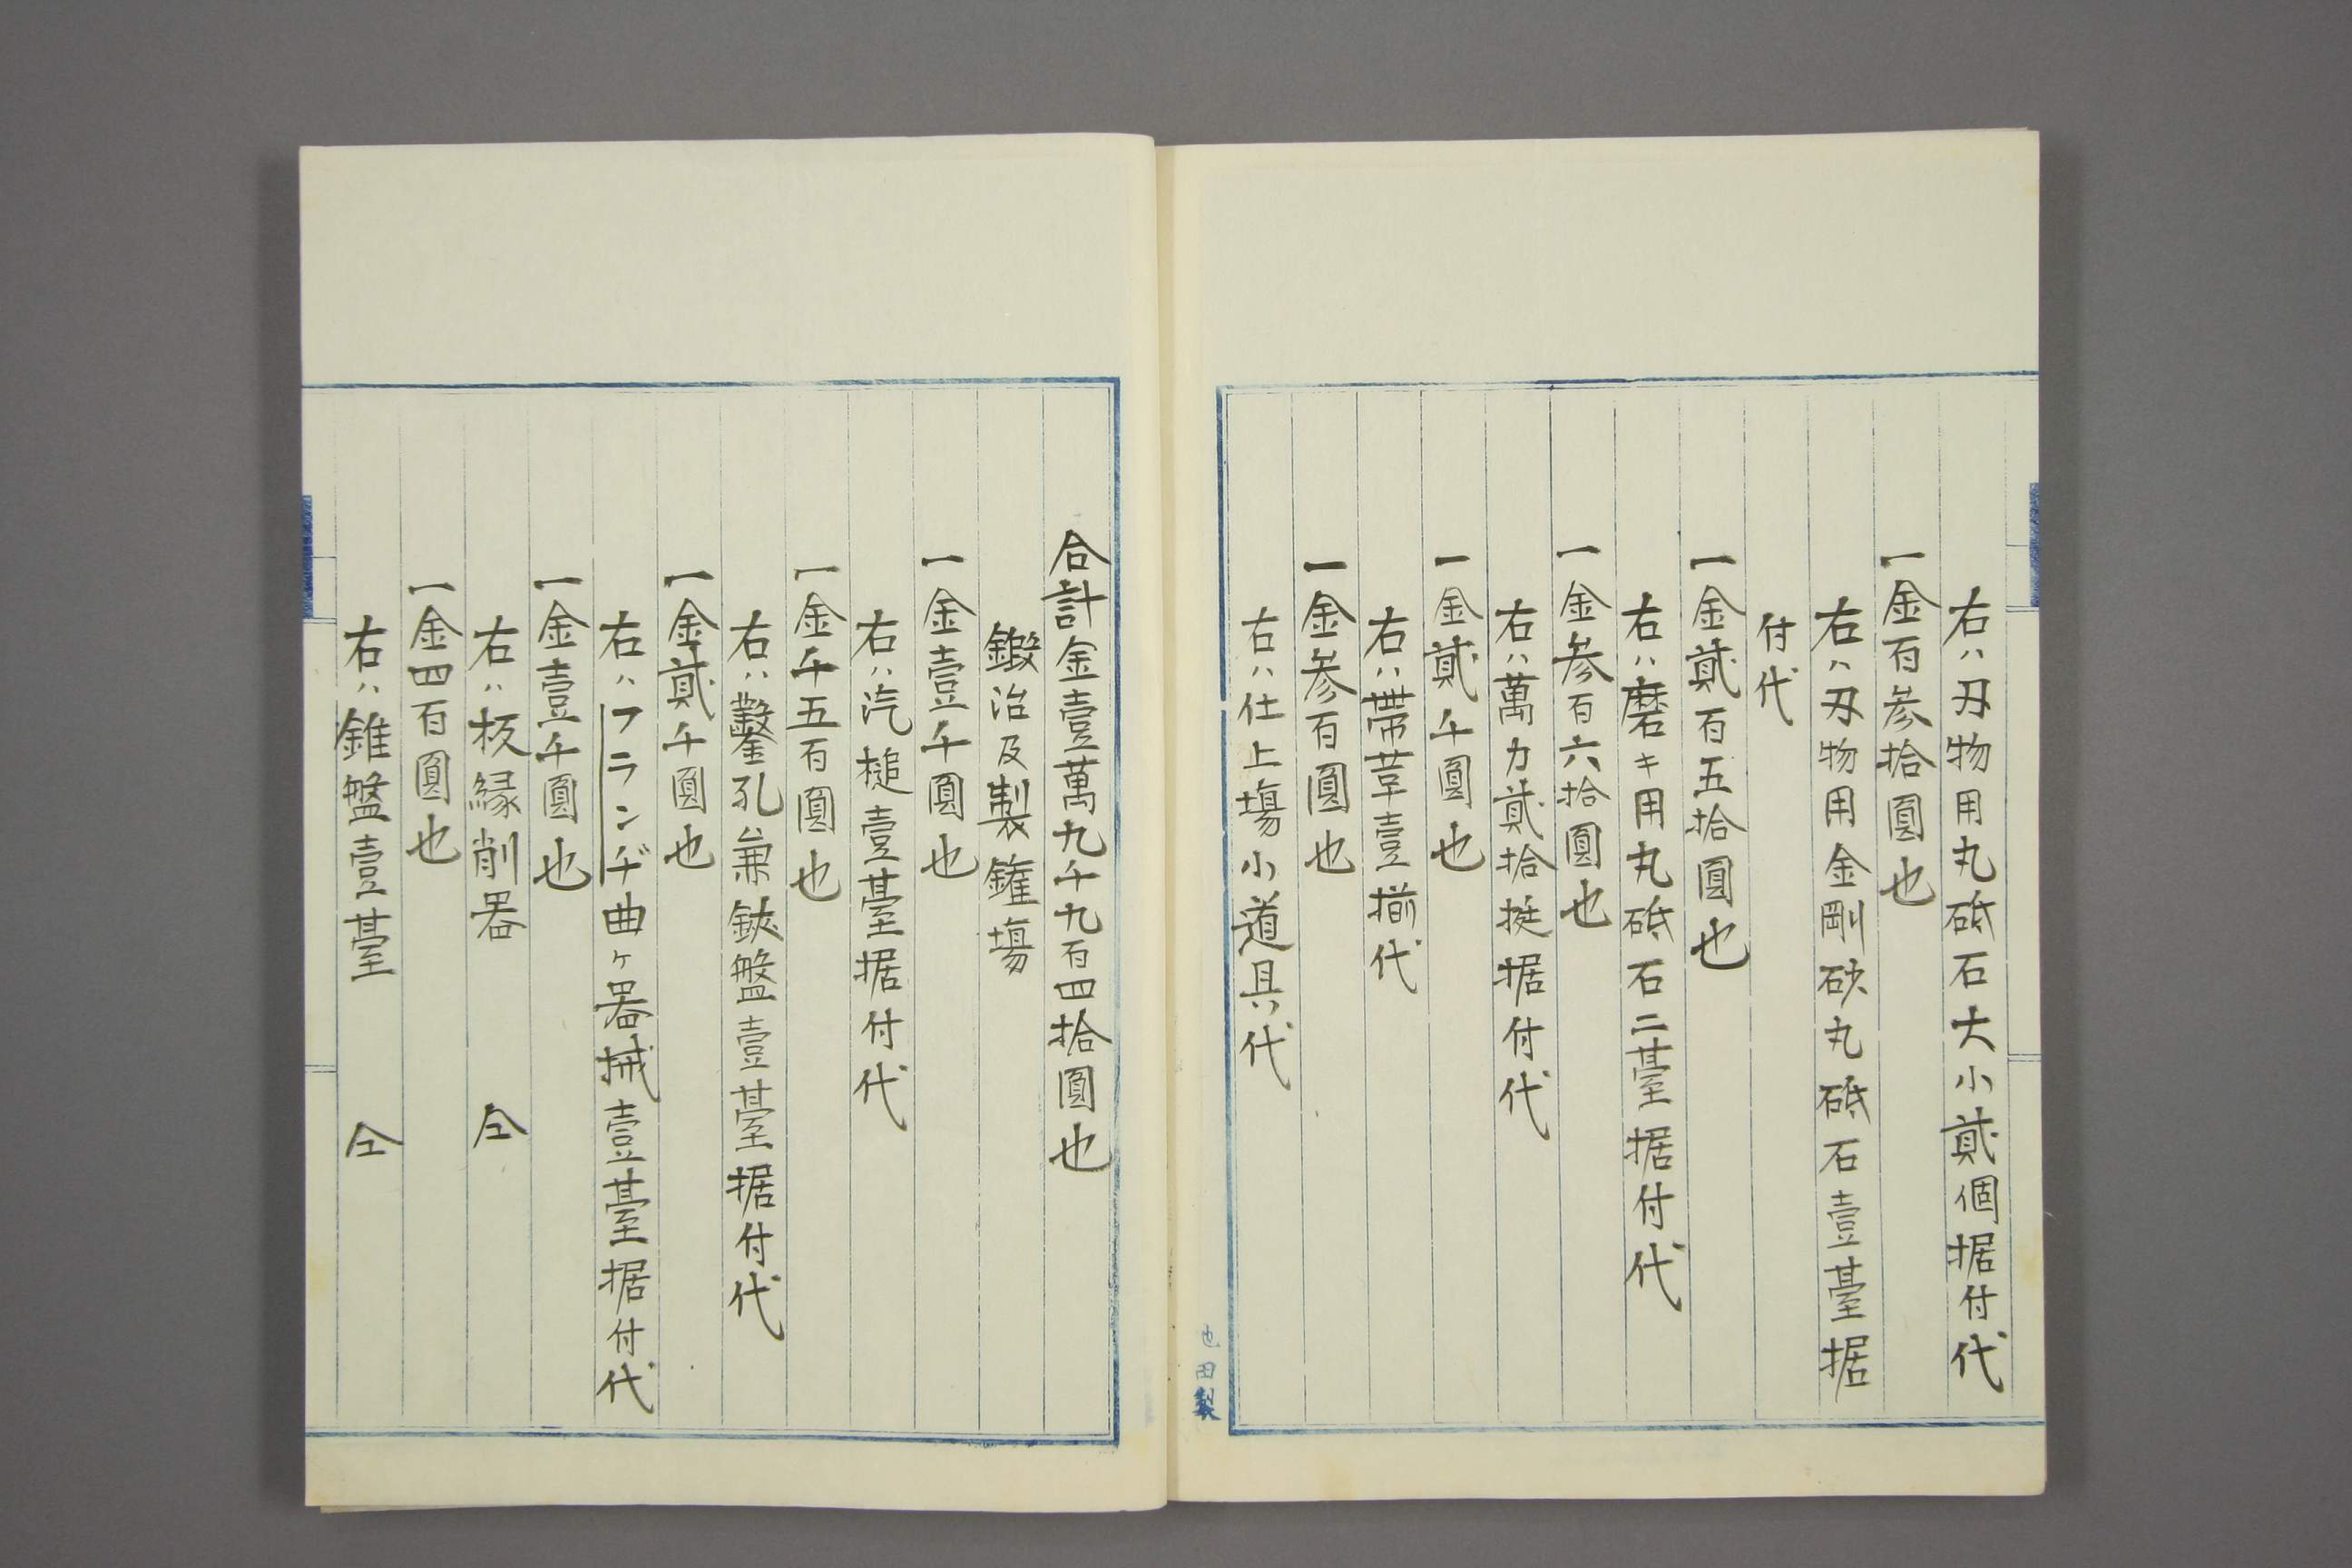 右ハ刃物用丸砥石大小貳個据付代
一金百参拾圓也
右ハ刃物用金剛砂丸砥石壹臺据
付代
一金貳百五拾圓也
右ハ磨キ用丸砥石二臺据付代
一金参百六拾圓也
右ハ萬力貳拾挺据付代
一金貳千圓也
右ハ帶革壹揃代
一金参百圓也
右ハ仕上塲小道具代
池田製
合計金壹萬九千九百四拾圓也
鍛冶及製鑵塲
一金壹千圓也
右ハ汽槌壹臺据付代
一金千五百圓也
右ハ鑿孔兼鋏盤壹臺据付代
一金貳千圓也
右ハフランヂ曲ヶ器械壹臺据付代
一金壹千圓也
右ハ板縁削器 仝
一金四百圓也
右ハ錐盤壹臺 仝